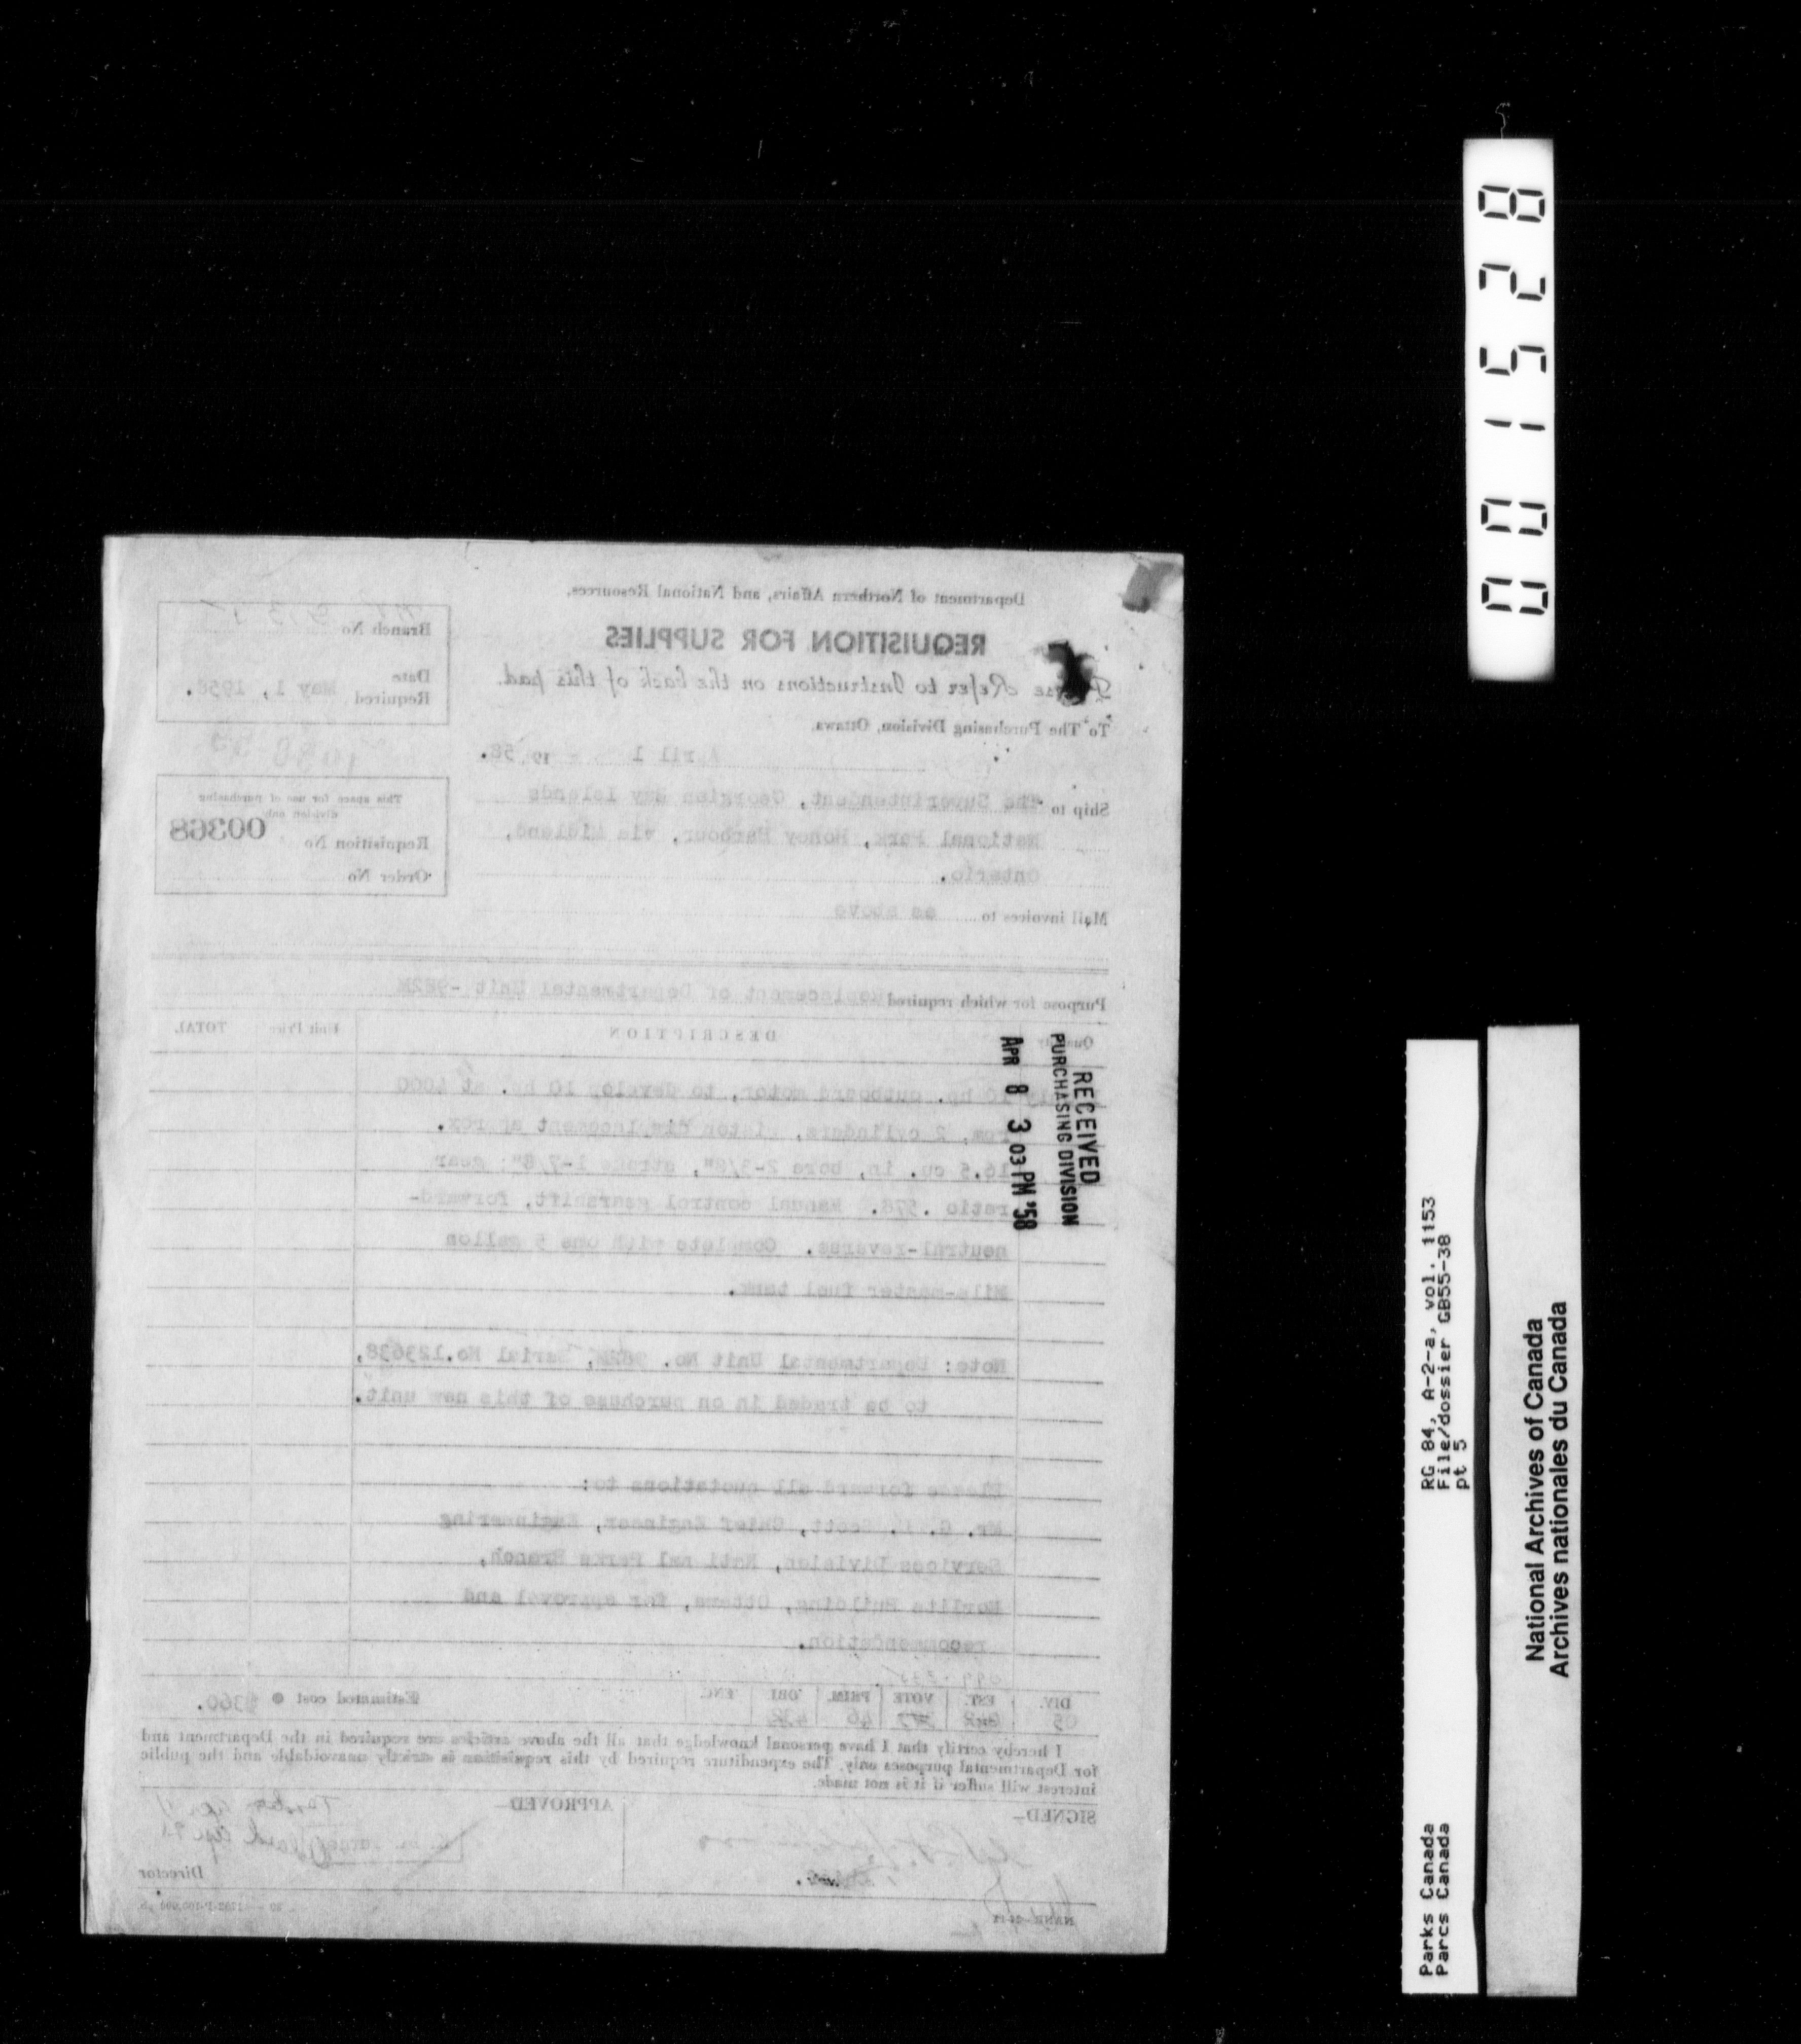 Department of Northern Affairs, and National Resources.
REQUISITION FOR SUPPLIES
Refer to Instructions on the back of this pad.
To The Purchasing Division, Ottawa.
April 1 19 58.
Ship to The Superintendent, Georgian Bay Islands
National Park, Honey Harbour, via Midland,
Ontario.
Mail invoices to as above
Branch No
Date
Required May 1, 1958.
This space for use of purchasing
division only
Requisition No 00368
Order No
Purpose for which required Replacement of Departmental Unit -982M
Quantity DESCRIPTION Unit Price TOTAL
only 10 hp. outboard motor, to develop 10 hp. at 4000
rpm, 2 cylinders, piston displacement approx.
16.5 cu. in, bore 2-3/8", stroke 1-7/8"; gear
ratio .578. Manual control gearshift, forward-
neutral-reverse. Complete with one 5 gallon
Mile-master fuel tank.
Note: Departmental Unit No. 982M, Serial No.123638,
to be traded in on purchase of this new unit.
Please forward all quotations to:
Mr. G. Scott, Chief Engineer, Engineering
Services Division, National Parks Branch,
Norlite Building, Ottawa, for approval and
recommendation.
DIV. EST. VOTE PRIM. OBJ ENC.
05 46
Estimated cost @ $360.
I hereby certify that I have personal knowledge that all the above articles are required in the Department and
for Departmental purposes only. The expenditure required by this requisition is strictly unavoidable and the public
interest will suffer if it is not made.
SIGNED—
APPROVED—
Director
RECEIVED
PURCHASING DIVISION
APR 8 3 03 PM '58
001528
RG 84, A-2-a, vol. 1153
File/dossier GB55-38
pt 5
Parks Canada
Parcs Canada
National Archives of Canada
Archives nationales du Canada